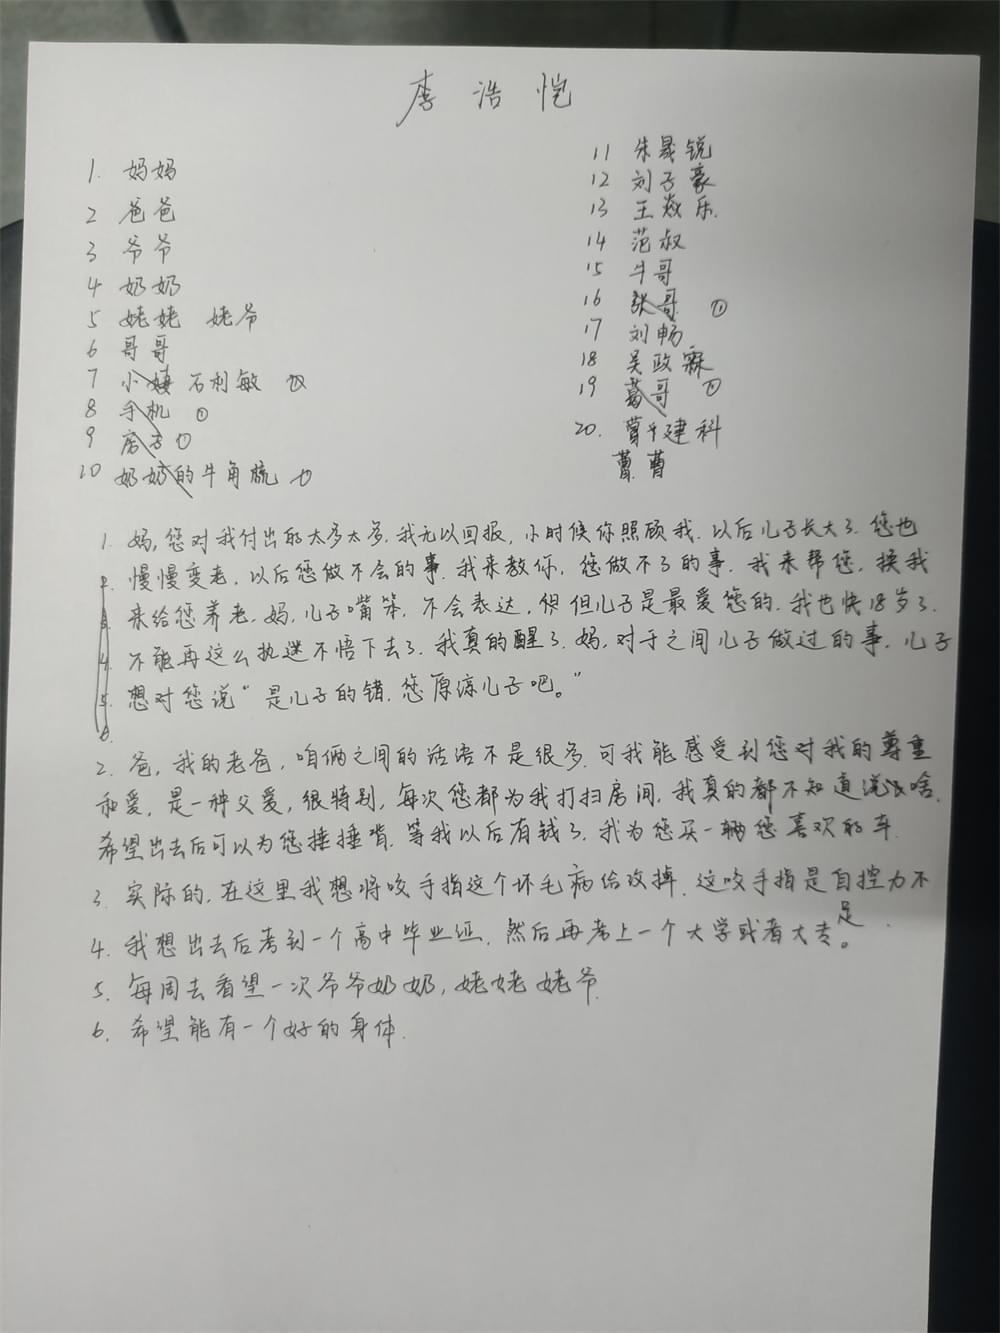 李浩恺
1. 妈妈
2 爸爸
3 爷爷
4 奶奶
5 姥姥 姥爷
6 哥哥
7 小姨 石利敏 ①
8 手机 ①
9 房 ①
10 奶奶的牛角梳 ①
11 朱晟锐
12 刘子豪
13 王焱乐.
14 范叔
15 牛哥
16 张哥 ①
17 刘畅
18 吴政霖
19 葛哥 ①
20. 曹 建科
曹 曹
1. 妈,您对我付出的太多太多.我无以回报,小时候你照顾我.以后儿子长大了.您也
2. 慢慢变老,以后您做不会的事.我来教你,您做不了的事.我来帮您,换我
3. 来给您养老.妈,儿子嘴笨,不会表达,但但儿子是最爱您的.我也快18岁了.
4. 不能再这么执迷不悟下去了.我真的醒了.妈,对于之间儿子做过的事.儿子
5. 想对您说“是儿子的错.您原谅儿子吧。”
6.
2. 爸,我的老爸,咱俩之间的话语不是很多.可我能感受到您对我的尊重
和爱,是一种父爱,很特别,每次您都为我打扫房间,我真的都不知道说啥.
希望出去后可以为您捶捶背.等我以后有钱了.我为您买一辆您喜欢的车.
3. 实际的,在这里我想将咬手指这个坏毛病给改掉.这咬手指是自控力不
足.
4. 我想出去后考到一个高中毕业证.然后再考上一个大学或者大专。
5. 每周去看望一次爷爷奶奶,姥姥姥爷.
6. 希望能有一个好的身体.